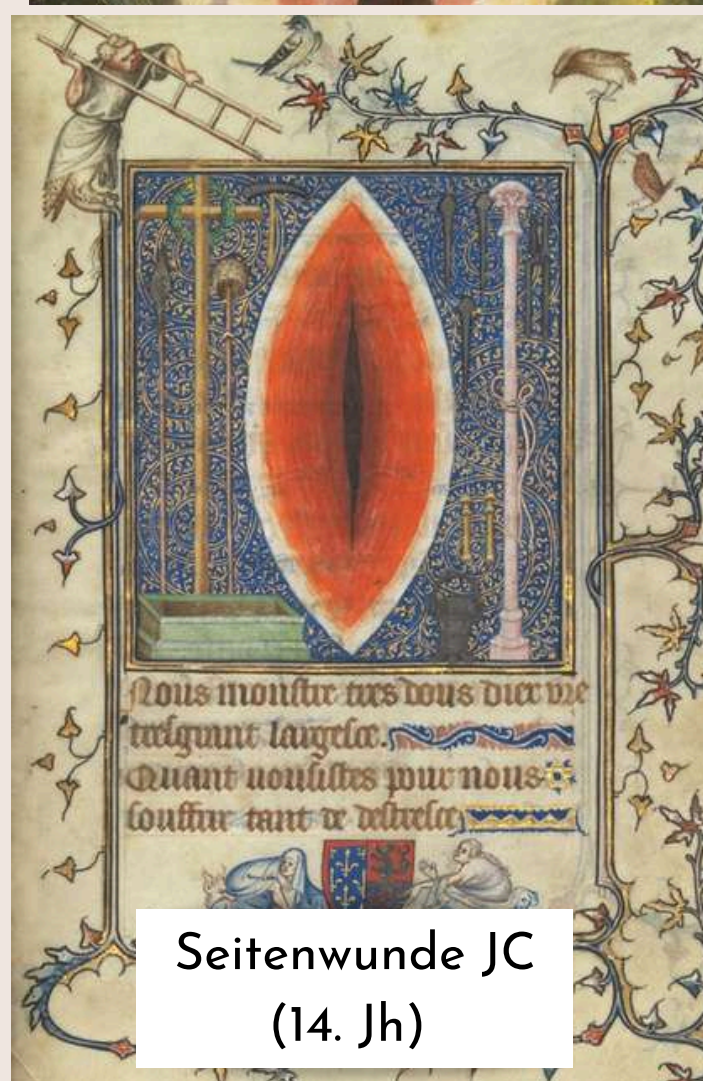 Nous monstre tres dous diex vre
tresgrant largesce.
Quant vousistes pour nous
souffrir tant de destresce
Seitenwunde JC
(14. Jh)